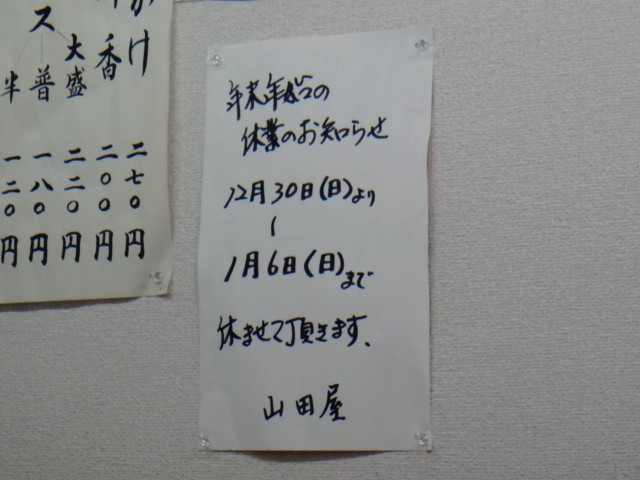 年末年始の
休業のお知らせ
12月30日(日)より
〜
1月6日(日)まで
休ませて頂きます、
山田屋
かけ 二七〇円
香 二〇〇円
大盛 二二〇円
ス 普 一八〇円
半 一二〇円